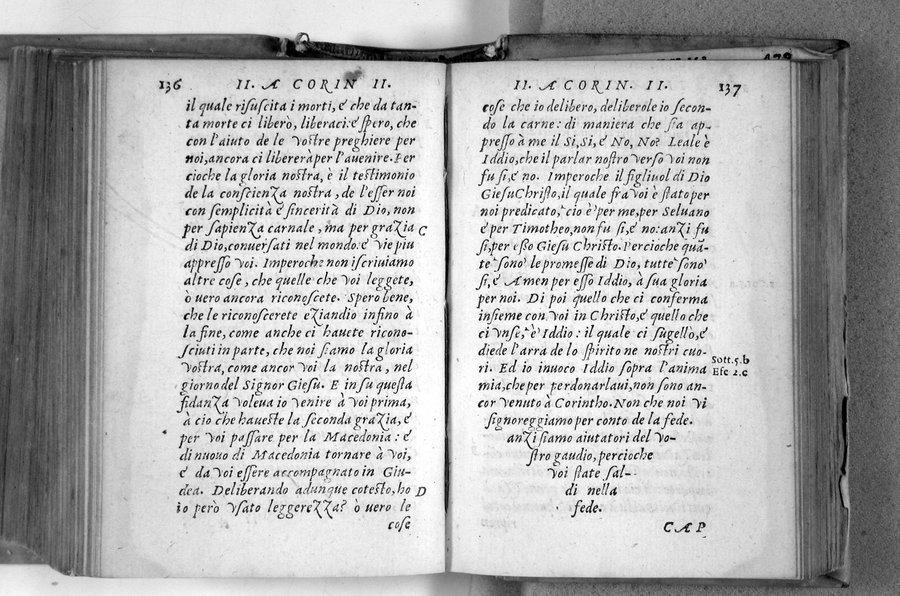 136 II. A CORIN II.
il quale risuscita i morti, é che da tan-
ta morte ci liberò, liberaci: é spero, che
con l'aiuto de le vostre preghiere per
noi, ancora ci libererà per l'auenire. Per
cioche la gloria nostra, è il testimonio
de la conscienza nostra, de l'esser noi
con semplicità é sincerità di Dio, non
per sapienza carnale, ma per grazia C
di Dio, conuersati nel mondo: é vie piu
appresso voi. Imperoche non iscriuiamo
altre cose, che quelle che voi leggete,
ò uero ancora riconoscete. Spero bene,
che le riconoscerete eziandio infino à
la fine, come anche ci hauete ricono-
sciuti in parte, che noi siamo la gloria
vostra, come ancor voi la nostra, nel
giorno del Signor Giesu. E in su questa
fidanza voleua io venire à voi prima,
à cio che haueste la seconda grazia, é
per voi passare per la Macedonia: é
di nuouo di Macedonia tornare à voi,
é da voi essere accompagnato in Giu-
dea. Deliberando adunque cotesto, ho D
io però vsato leggerezza? ò uero le
cose
II. A CORIN. II. 137
cose che io delibero, deliberole io secon-
do la carne: di maniera che sia ap-
presso à me il Si, Si, é No, No? Leale è
Iddio, che il parlar nostro verso voi non
fu si, é no. Imperoche il figliuol di Dio
Giesu Christo, il quale fra voi è stato per
noi predicato, cio è per me, per Seluano
é per Timotheo, non fu si, é no: anzi fu
si, per esso Giesu Christo. Percioche quã-
te sono le promesse di Dio, tutte sono
si, é Amen per esso Iddio, à sua gloria
per noi. Di poi quello che ci conferma
insieme con voi in Christo, é quello che
ci vnse, è Iddio: il quale ci sugellò, é
diede l'arra de lo spirito ne nostri cuo-
ri. Ed io inuoco Iddio sopra l'anima
mia, che per perdonarlaui, non sono an-
cor venuto à Corintho. Non che noi vi
signoreggiamo per conto de la fede.
anzi siamo aiutatori del vo-
stro gaudio, percioche
voi state sal-
di nella
fede.
Sott. 5. b
Efe 2. c
CAP.